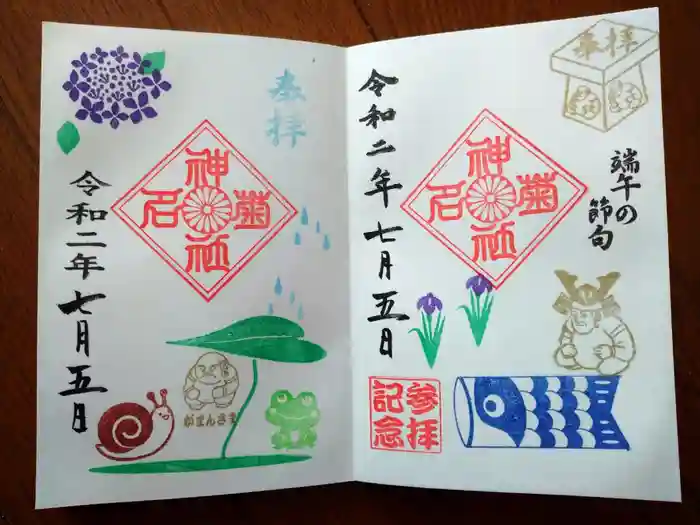 奉拝
端午の節句
菊名神社
令和二年七月五日
参拝
記念
奉拝
菊名神社
令和二年七月五日
がまんさま